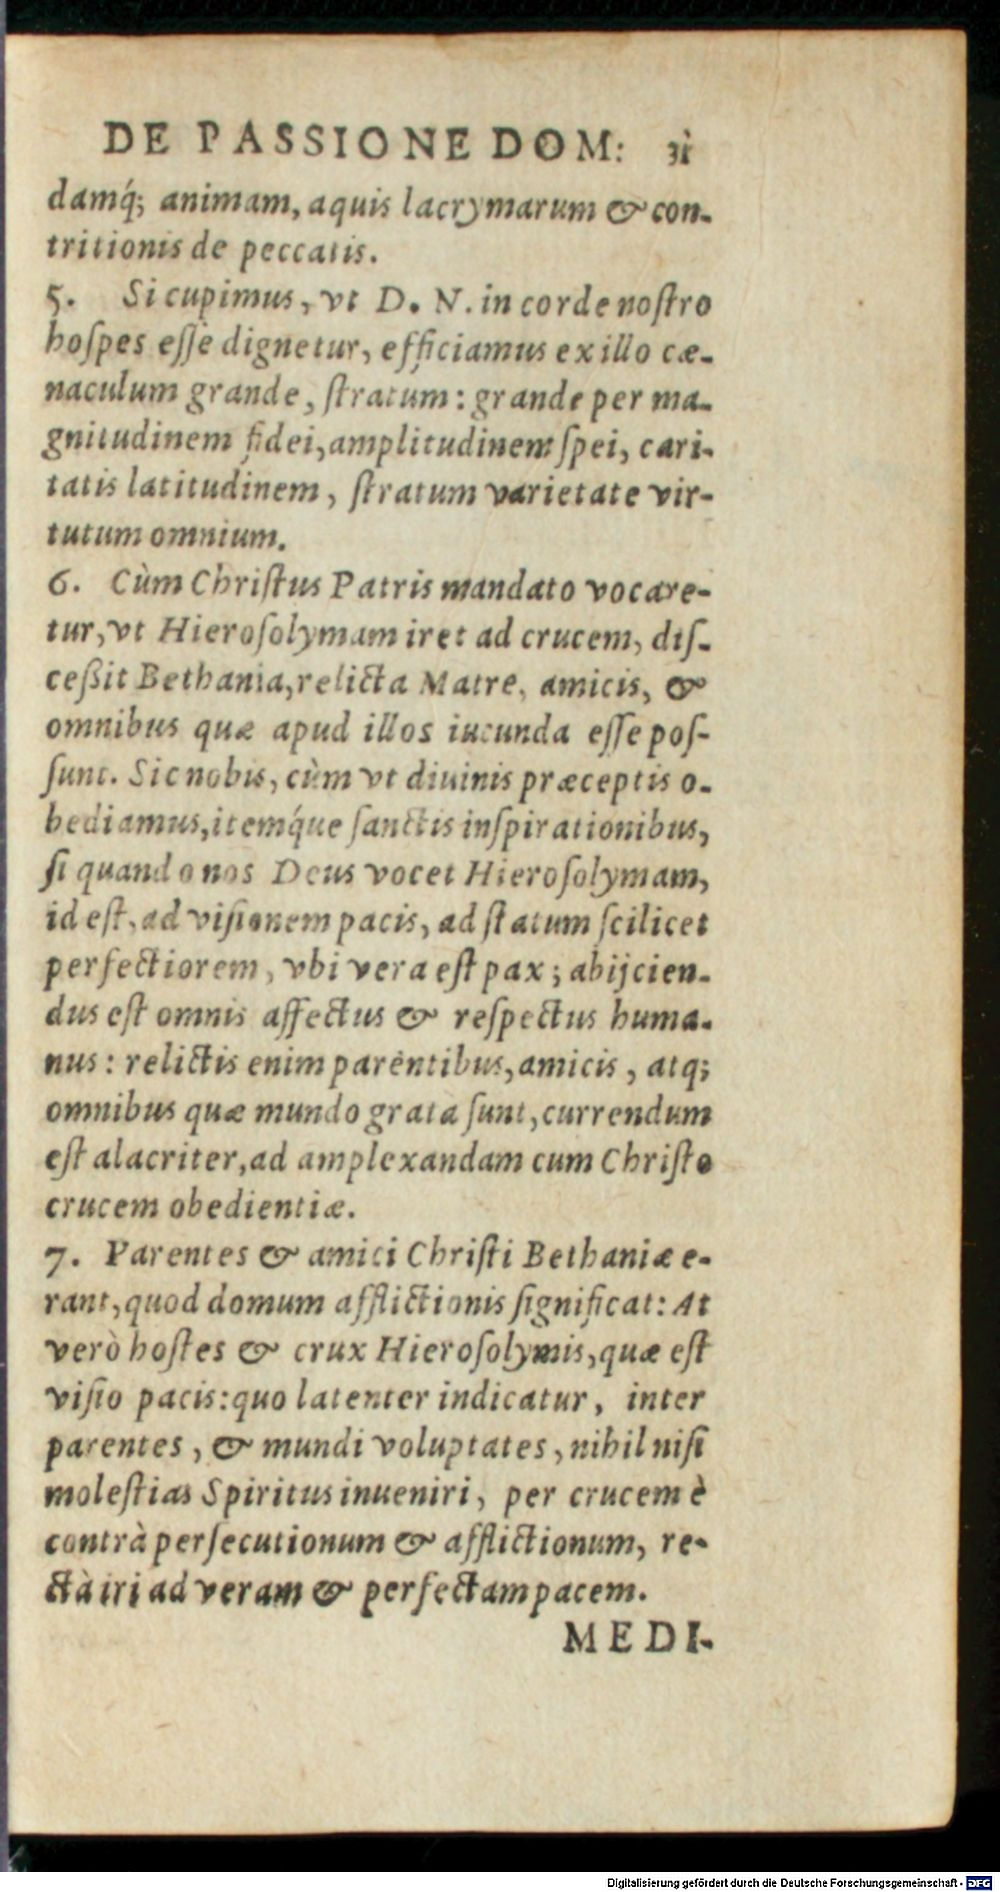 DE PASSIONE DOM: 31
damq́; animam, aquis lacrymarum & con-
tritionis de peccatis.
5. Si cupimus, vt D. N. in corde noſtro
hoſpes eſſe dignetur, efficiamus ex illo cæ-
naculum grande, ſtratum: grande per ma-
gnitudinem fidei, amplitudinem ſpei, cari-
tatis latitudinem, ſtratum varietate vir-
tutum omnium.
6. Cùm Chriſtus Patris mandato vocare-
tur, vt Hieroſolymam iret ad crucem, diſ-
ceßit Bethania, relicta Matre, amicis, &
omnibus quæ apud illos iucunda eſſe poſ-
ſunt. Sic nobis, cùm vt diuinis præceptis o-
bediamus, itemq́ue ſanctis inſpirationibus,
ſi quando nos Deus vocet Hieroſolymam,
id eſt, ad viſionem pacis, ad ſtatum ſcilicet
perfectiorem, vbi vera eſt pax; abijcien-
dus eſt omnis affectus & reſpectus huma-
nus: relictis enim parentibus, amicis, atq;
omnibus quæ mundo grata ſunt, currendum
eſt alacriter, ad amplexandam cum Chriſto
crucem obedientiæ.
7. Parentes & amici Chriſti Bethaniæ e-
rant, quod domum afflictionis ſignificat: At
verò hoſtes & crux Hieroſolymis, quæ eſt
viſio pacis: quo latenter indicatur, inter
parentes, & mundi voluptates, nihil niſi
moleſtias Spiritus inueniri, per crucem è
contrà perſecutionum & afflictionum, re-
ctà iri ad veram & perfectam pacem.
MEDI-
Digitalisierung gefördert durch die Deutsche Forschungsgemeinschaft - DFG